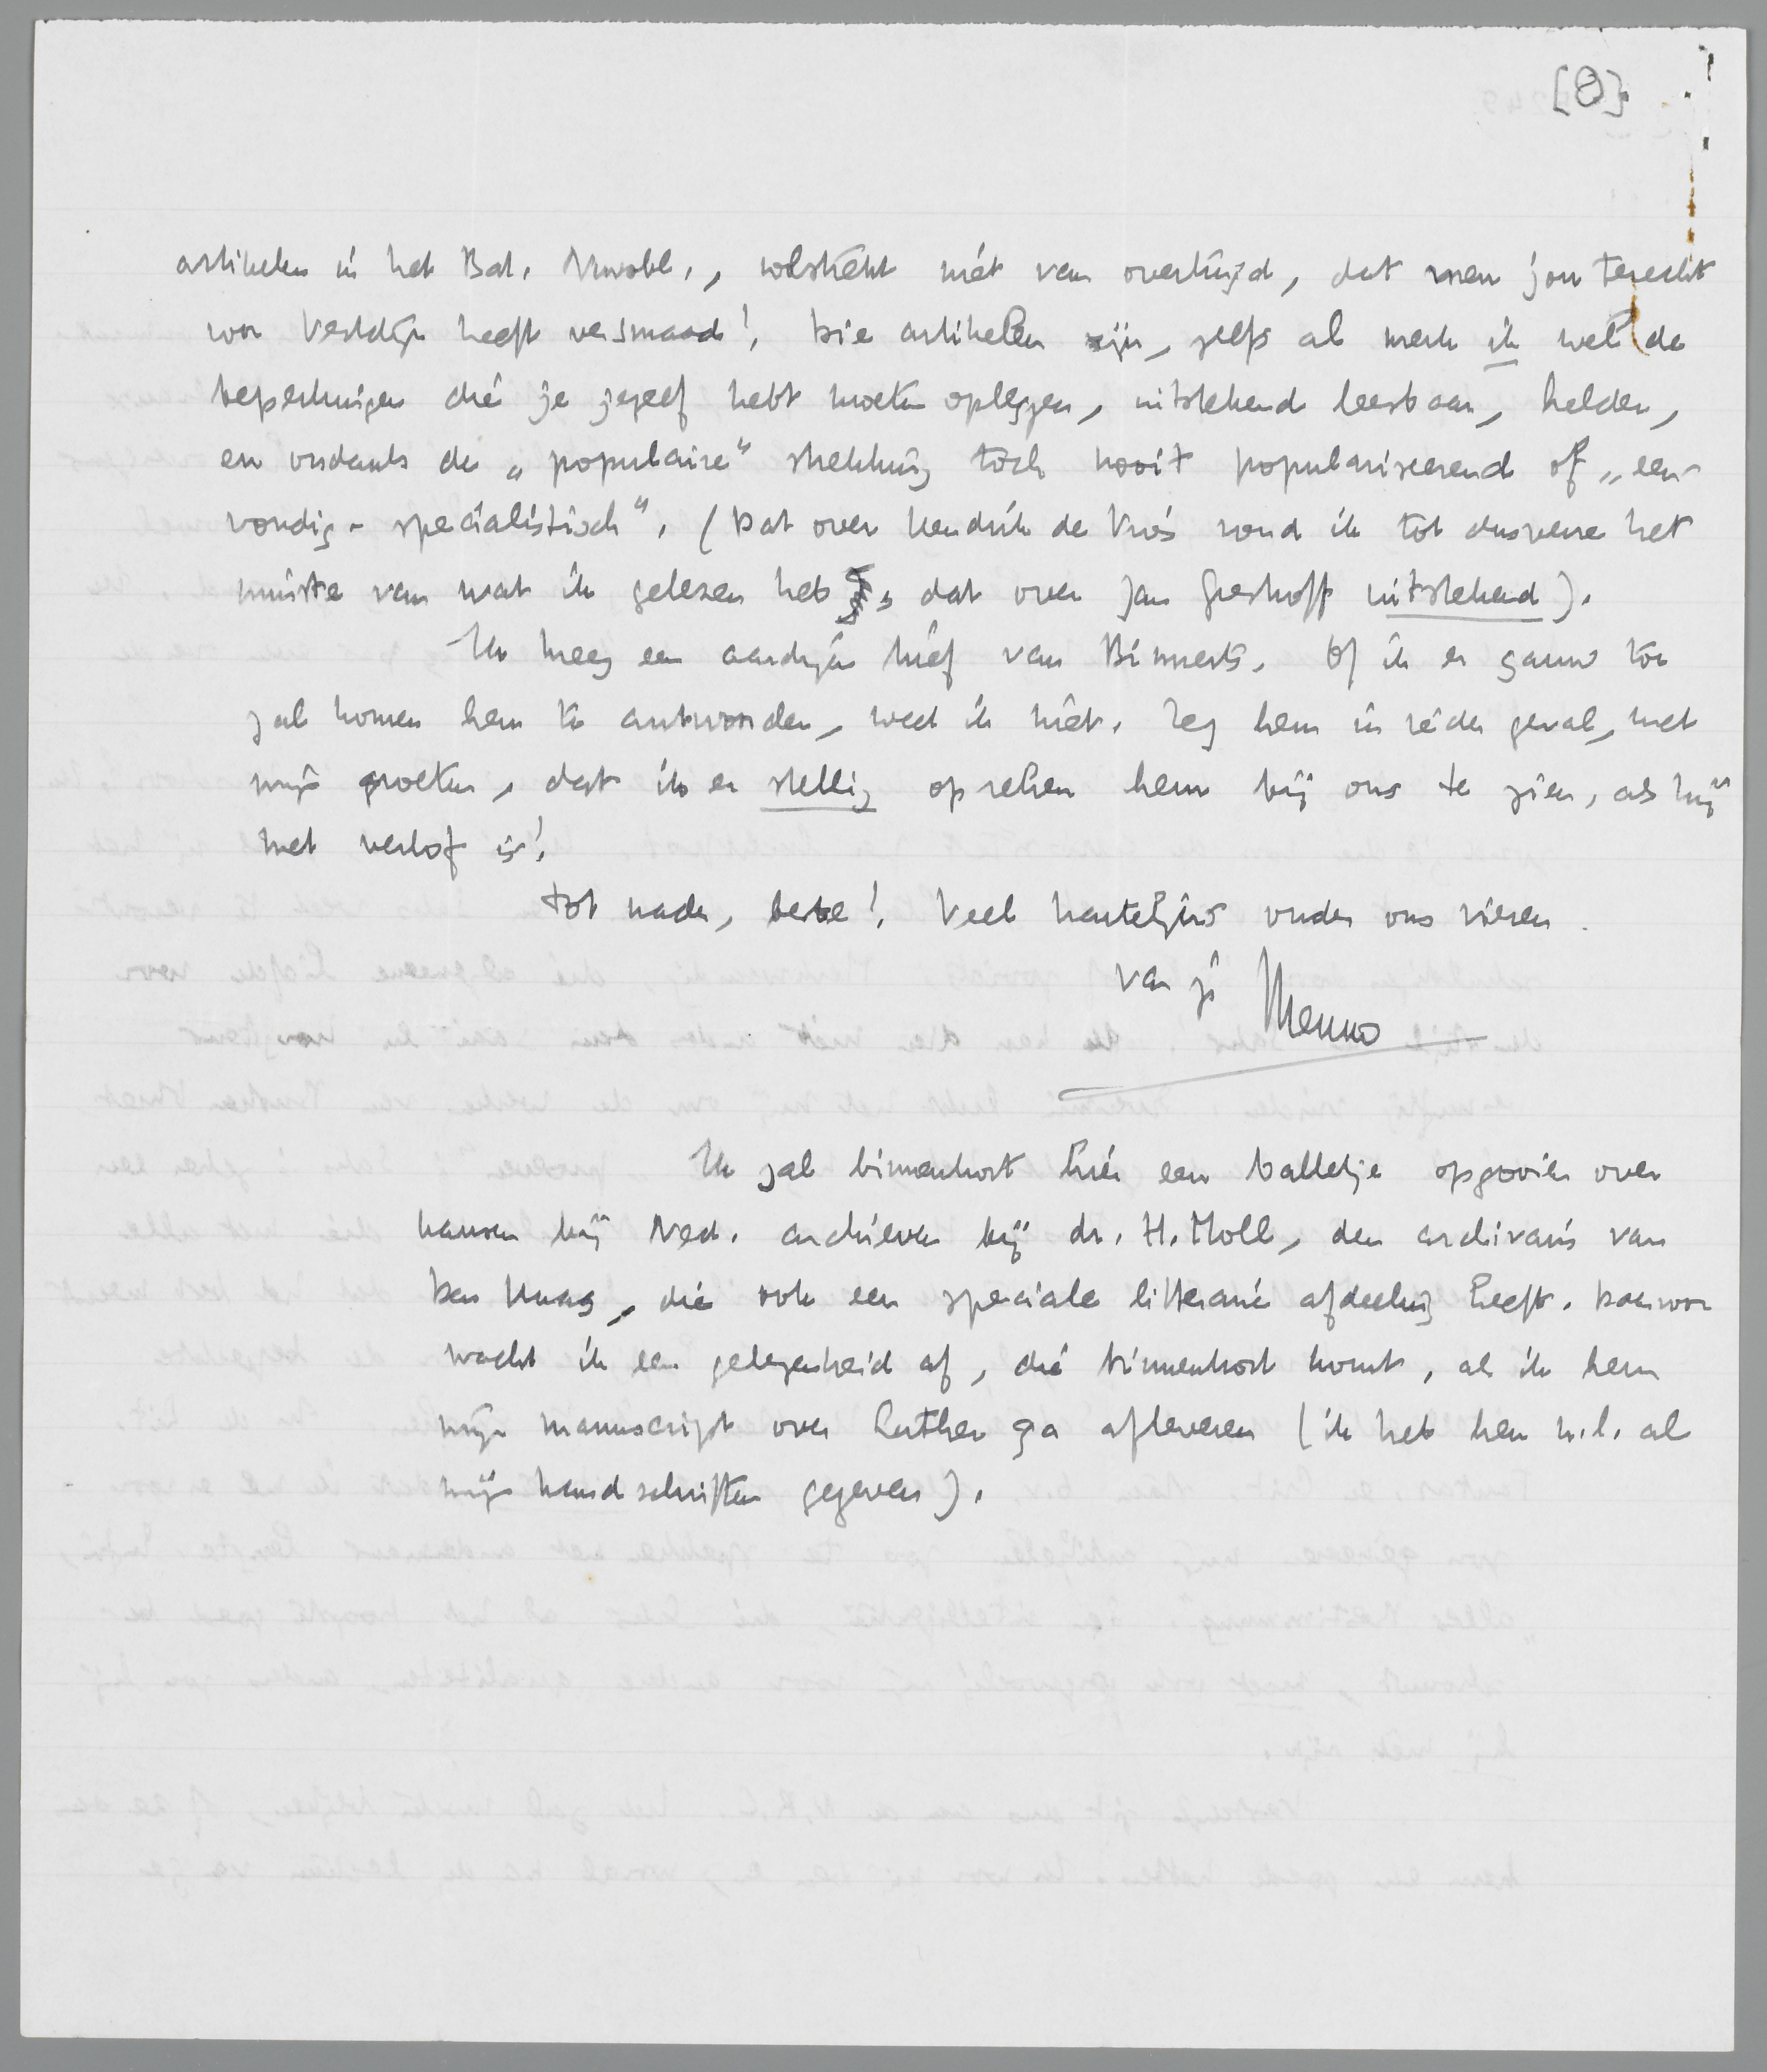 [8]
artikelen in het Bat. Nwsbl., volstrekt niet van overtuigd, dat men jou terecht
voor Verdwijn heeft versmaad! Die artikelen zijn, zelfs al merk ik wel de
beperkingen die je jezelf hebt moeten opleggen, uitstekend leesbaar, helder,
en ondanks de „populaire" strekking toch nooit populariseerend of „een-
voudig-specialistisch". (Dat over Hendrik de Vries vond ik tot dusverre het
minste van wat ik gelezen heb, dat over Jan Greshoff uitstekend).
Ik kreeg een aardigen brief van Binnerts. Of ik er gauw toe
zal komen hem te antwoorden, weet ik niet. Zeg hem in ieder geval, met
mijn groeten, dat ik er stellig op reken hem bij ons te zien, als hij
met verlof is!
Tot nader, beste! Veel hartelijks onder ons vieren
van je Menno
Ik zal binnenkort hier een balletje opgooien over
kansen bij Ned. archieven bij dr. H. Moll, den archivaris van
Den Haag, die ook een speciale litteraire afdeeling heeft. Daarvoor
wacht ik een gelegenheid af, die binnenkort komt, als ik hem
mijn manuscript over Luther ga afleveren (ik heb hem n.l. al
mijn handschriften gegeven).